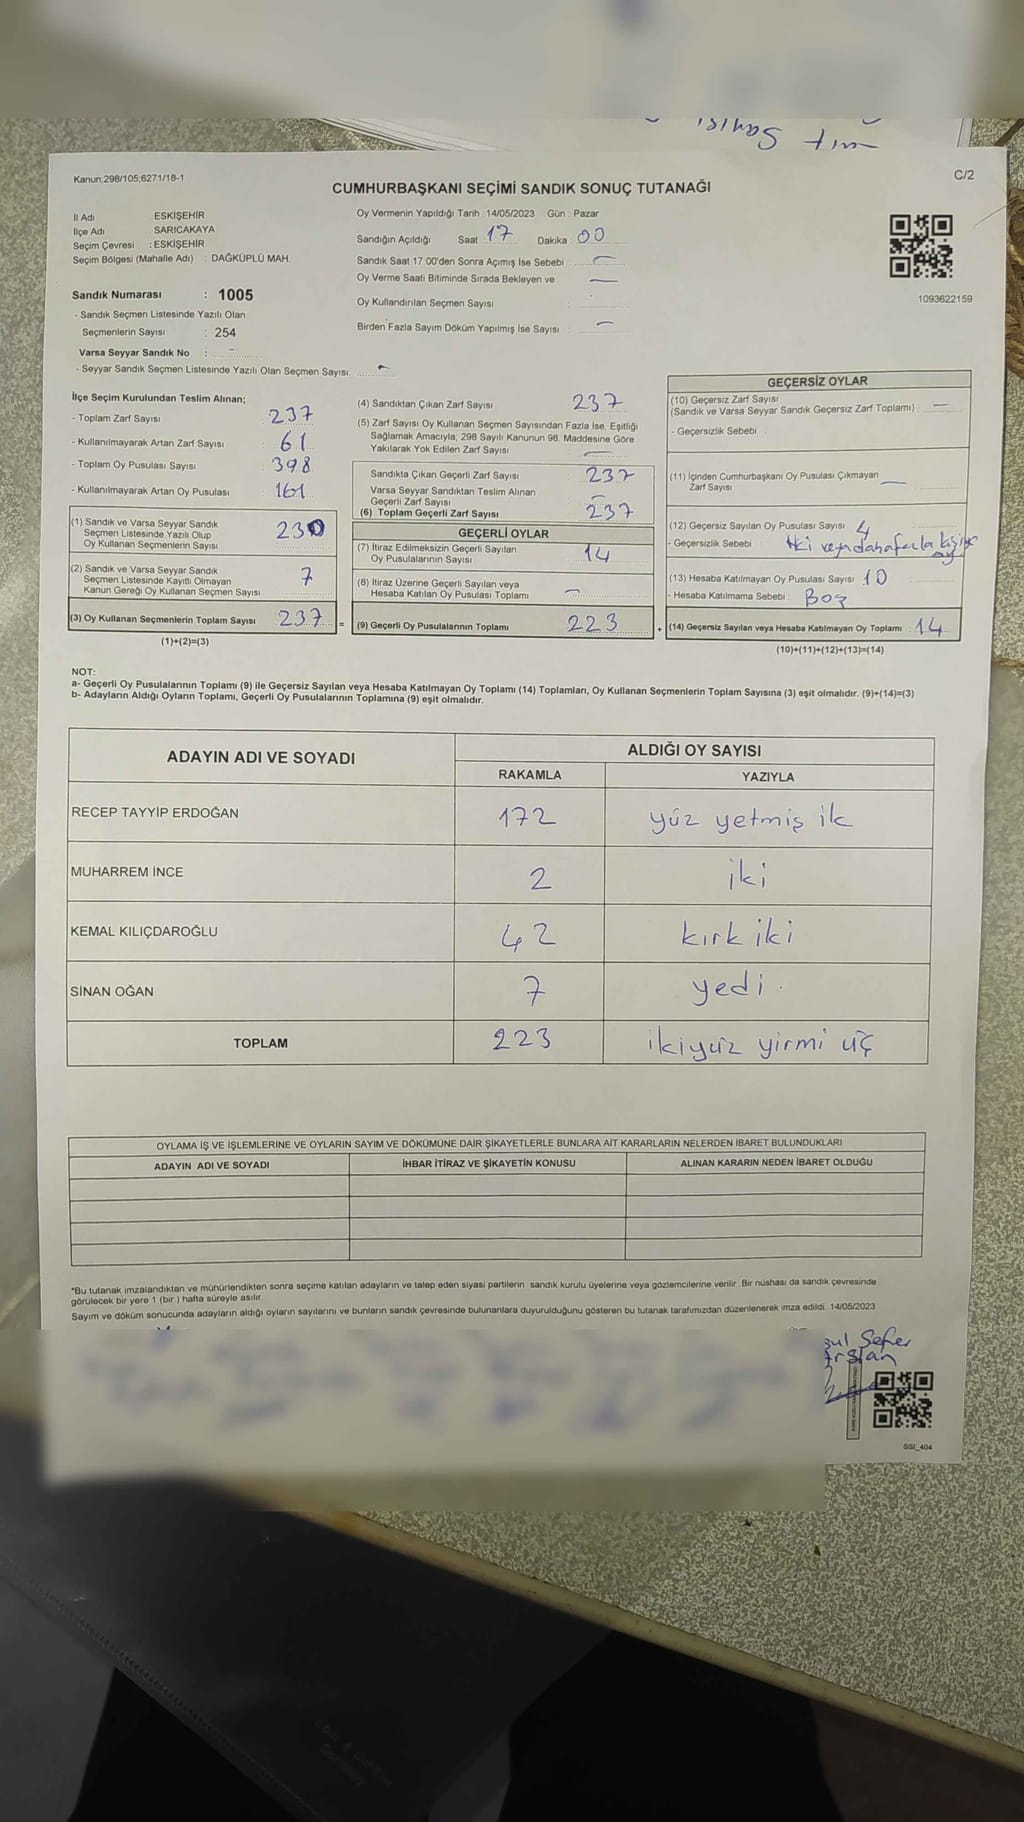 Sayısı
Kanun;298/105;6271/18-1
C/2
CUMHURBAŞKANI SEÇİMİ SANDIK SONUÇ TUTANAĞI
İl Adı ESKİŞEHİR
İlçe Adı SARICAKAYA
Seçim Çevresi : ESKİŞEHİR
Seçim Bölgesi (Mahalle Adı) : DAĞKÜPLÜ MAH.
Sandık Numarası : 1005
- Sandık Seçmen Listesinde Yazılı Olan
Seçmenlerin Sayısı : 254
Varsa Seyyar Sandık No : -
- Seyyar Sandık Seçmen Listesinde Yazılı Olan Seçmen Sayısı: -
Oy Vermenin Yapıldığı Tarih : 14/05/2023 Gün : Pazar
Sandığın Açıldığı Saat : 17 Dakika : 00
Sandık Saat 17:00'den Sonra Açımış İse Sebebi : -
Oy Verme Saati Bitiminde Sırada Bekleyen ve -
Oy Kullandırılan Seçmen Sayısı
Birden Fazla Sayım Döküm Yapılmış İse Sayısı : -
1093622159
İlçe Seçim Kurulundan Teslim Alınan;
- Toplam Zarf Sayısı 237
- Kullanılmayarak Artan Zarf Sayısı 61
- Toplam Oy Pusulası Sayısı 398
- Kullanılmayarak Artan Oy Pusulası 161
(1) Sandık ve Varsa Seyyar Sandık
Seçmen Listesinde Yazılı Olup
Oy Kullanan Seçmenlerin Sayısı 230
(2) Sandık ve Varsa Seyyar Sandık
Seçmen Listesinde Kayıtlı Olmayan
Kanun Gereği Oy Kullanan Seçmen Sayısı 7
(3) Oy Kullanan Seçmenlerin Toplam Sayısı : 237 =
(1)+(2)=(3)
(4) Sandıktan Çıkan Zarf Sayısı 237
(5) Zarf Sayısı Oy Kullanan Seçmen Sayısından Fazla İse, Eşitliği
Sağlamak Amacıyla; 298 Sayılı Kanunun 98. Maddesine Göre
Yakılarak Yok Edilen Zarf Sayısı -
Sandıkta Çıkan Geçerli Zarf Sayısı 237
Varsa Seyyar Sandıktan Teslim Alınan
Geçerli Zarf Sayısı -
(6) Toplam Geçerli Zarf Sayısı 237
GEÇERLİ OYLAR
(7) İtiraz Edilmeksizin Geçerli Sayılan
Oy Pusulalarının Sayısı 14
(8) İtiraz Üzerine Geçerli Sayılan veya
Hesaba Katılan Oy Pusulası Toplamı -
(9) Geçerli Oy Pusulalarının Toplamı 223 +
GEÇERSİZ OYLAR
(10) Geçersiz Zarf Sayısı
(Sandık ve Varsa Seyyar Sandık Geçersiz Zarf Toplamı) : -
- Geçersizlik Sebebi
(11) İçinden Cumhurbaşkanı Oy Pusulası Çıkmayan
Zarf Sayısı -
(12) Geçersiz Sayılan Oy Pusulası Sayısı 4
- Geçersizlik Sebebi : iki veya daha fazla kişiye
oy
(13) Hesaba Katılmayan Oy Pusulası Sayısı 10
- Hesaba Katılmama Sebebi : Boş
(14) Geçersiz Sayılan veya Hesaba Katılmayan Oy Toplamı : 14
(10)+(11)+(12)+(13)=(14)
NOT:
a- Geçerli Oy Pusulalarının Toplamı (9) ile Geçersiz Sayılan veya Hesaba Katılmayan Oy Toplamı (14) Toplamları, Oy Kullanan Seçmenlerin Toplam Sayısına (3) eşit olmalıdır. (9)+(14)=(3)
b- Adayların Aldığı Oyların Toplamı, Geçerli Oy Pusulalarının Toplamına (9) eşit olmalıdır.
ADAYIN ADI VE SOYADI ALDIĞI OY SAYISI
RAKAMLA YAZIYLA
RECEP TAYYİP ERDOĞAN 172 yüz yetmiş ik
MUHARREM İNCE 2 iki
KEMAL KILIÇDAROĞLU 42 kırk iki
SİNAN OĞAN 7 yedi
TOPLAM 223 ikiyüz yirmi üç
OYLAMA İŞ VE İŞLEMLERİNE VE OYLARIN SAYIM VE DÖKÜMÜNE DAİR ŞİKAYETLERLE BUNLARA AİT KARARLARIN NELERDEN İBARET BULUNDUKLARI
ADAYIN ADI VE SOYADI İHBAR İTİRAZ VE ŞİKAYETİN KONUSU ALINAN KARARIN NEDEN İBARET OLDUĞU
*Bu tutanak imzalandıktan ve mühürlendikten sonra seçime katılan adayların ve talep eden siyasi partilerin sandık kurulu üyelerine veya gözlemcilerine verilir. Bir nüshası da sandık çevresinde
görülecek bir yere 1 (bir ) hafta süreyle asılır.
Sayım ve döküm sonucunda adayların aldığı oyların sayılarını ve bunların sandık çevresinde bulunanlara duyurulduğunu gösteren bu tutanak tarafımızdan düzenlenerek imza edildi. 14/05/2023
Sefer
Arslan
SSİ_404